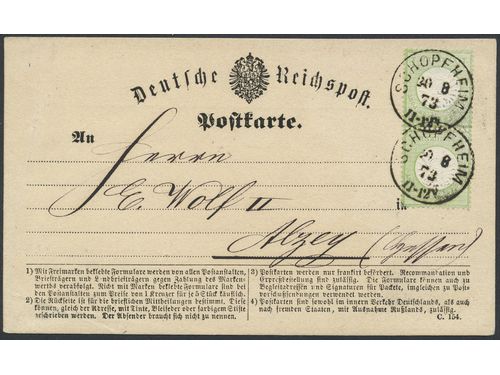 Deutsche Reichspost.
Postkarte.
SCHOPFHEIM
20 8
73
11-12V
SCHOPFHEIM
20 8
73
11-12V
An
Herrn
E. Wolf II
in
Alzey (Hessen)
1) Mit Freimarken beklebte Formulare werden von allen Postanstalten,
Briefträgern und Landbriefträgern gegen Zahlung des Marken-
werths verabfolgt. Nicht mit Marken beklebte Formulare sind bei
den Postanstalten zum Preise von 1 Kreuzer für je 5 Stück käuflich.
2) Die Rückseite ist für die brieflichen Mittheilungen bestimmt. Diese
können, gleich der Adresse, mit Tinte, Bleifeder oder farbigem Stifte
geschrieben werden. Der Absender braucht sich nicht zu nennen.
3) Postkarten werden nur frankirt befördert. Recommandation und
Expreßbestellung sind zulässig. Die Formulare können auch zu
Begleitadressen und Signaturen für Packete, imgleichen zu Post-
vorschußsendungen verwendet werden.
4) Postkarten sind sowohl im innern Verkehr Deutschlands, als auch
nach fremden Staaten, mit Ausnahme Rußlands, zulässig.
C. 154.